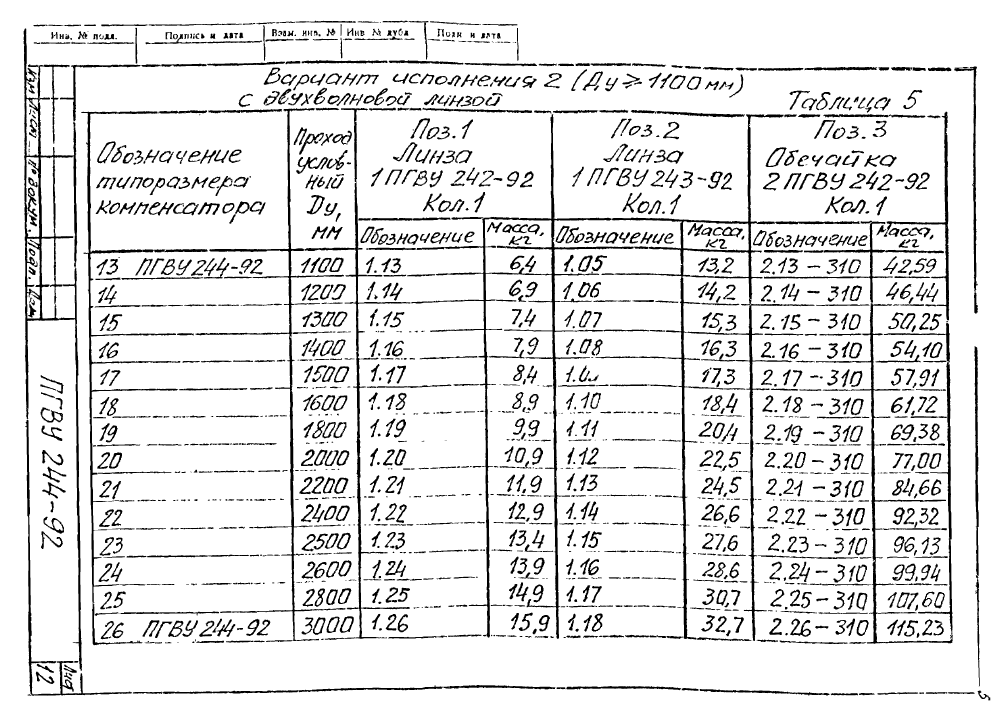 Инв. № подл. Подпись и дата Взам. инв. № Инв № дубл Подп и дата
Вариант исполнения 2 (Ду ≥ 1100 мм)
с двухволновой линзой
Таблица 5
Обозначение типоразмера компенсатора Проход услов- ный Ду, мм Поз. 1 Линза 1 ПГВУ 242-92 Кол. 1 Поз. 2 Линза 1 ПГВУ 243-92 Кол. 1 Поз. 3 Обечайка 2 ПГВУ 242-92 Кол. 1
Обозначение Масса, кг Обозначение Масса, кг Обозначение Масса, кг
13 ПГВУ 244-92 1100 1.13 6,4 1.05 13,2 2.13 - 310 42,59
14 1200 1.14 6,9 1.06 14,2 2.14 - 310 46,44
15 1300 1.15 7,4 1.07 15,3 2.15 - 310 50,25
16 1400 1.16 7,9 1.08 16,3 2.16 - 310 54,10
17 1500 1.17 8,4 17,3 2.17 - 310 57,91
18 1600 1.18 8,9 1.10 18,4 2.18 - 310 61,72
19 1800 1.19 9,9 1.11 20,4 2.19 - 310 69,38
20 2000 1.20 10,9 1.12 22,5 2.20 - 310 77,00
21 2200 1.21 11,9 1.13 24,5 2.21 - 310 84,66
22 2400 1.22 12,9 1.14 26,6 2.22 - 310 92,32
23 2500 1.23 13,4 1.15 27,6 2.23 - 310 96,13
24 2600 1.24 13,9 1.16 28,6 2.24 - 310 99,94
25 2800 1.25 14,9 1.17 30,7 2.25 - 310 107,60
26 ПГВУ 244-92 3000 1.26 15,9 1.18 32,7 2.26 - 310 115,23
Изм Лист № докум. Подп. Дата
ПГВУ 244-92
Лист
12
5